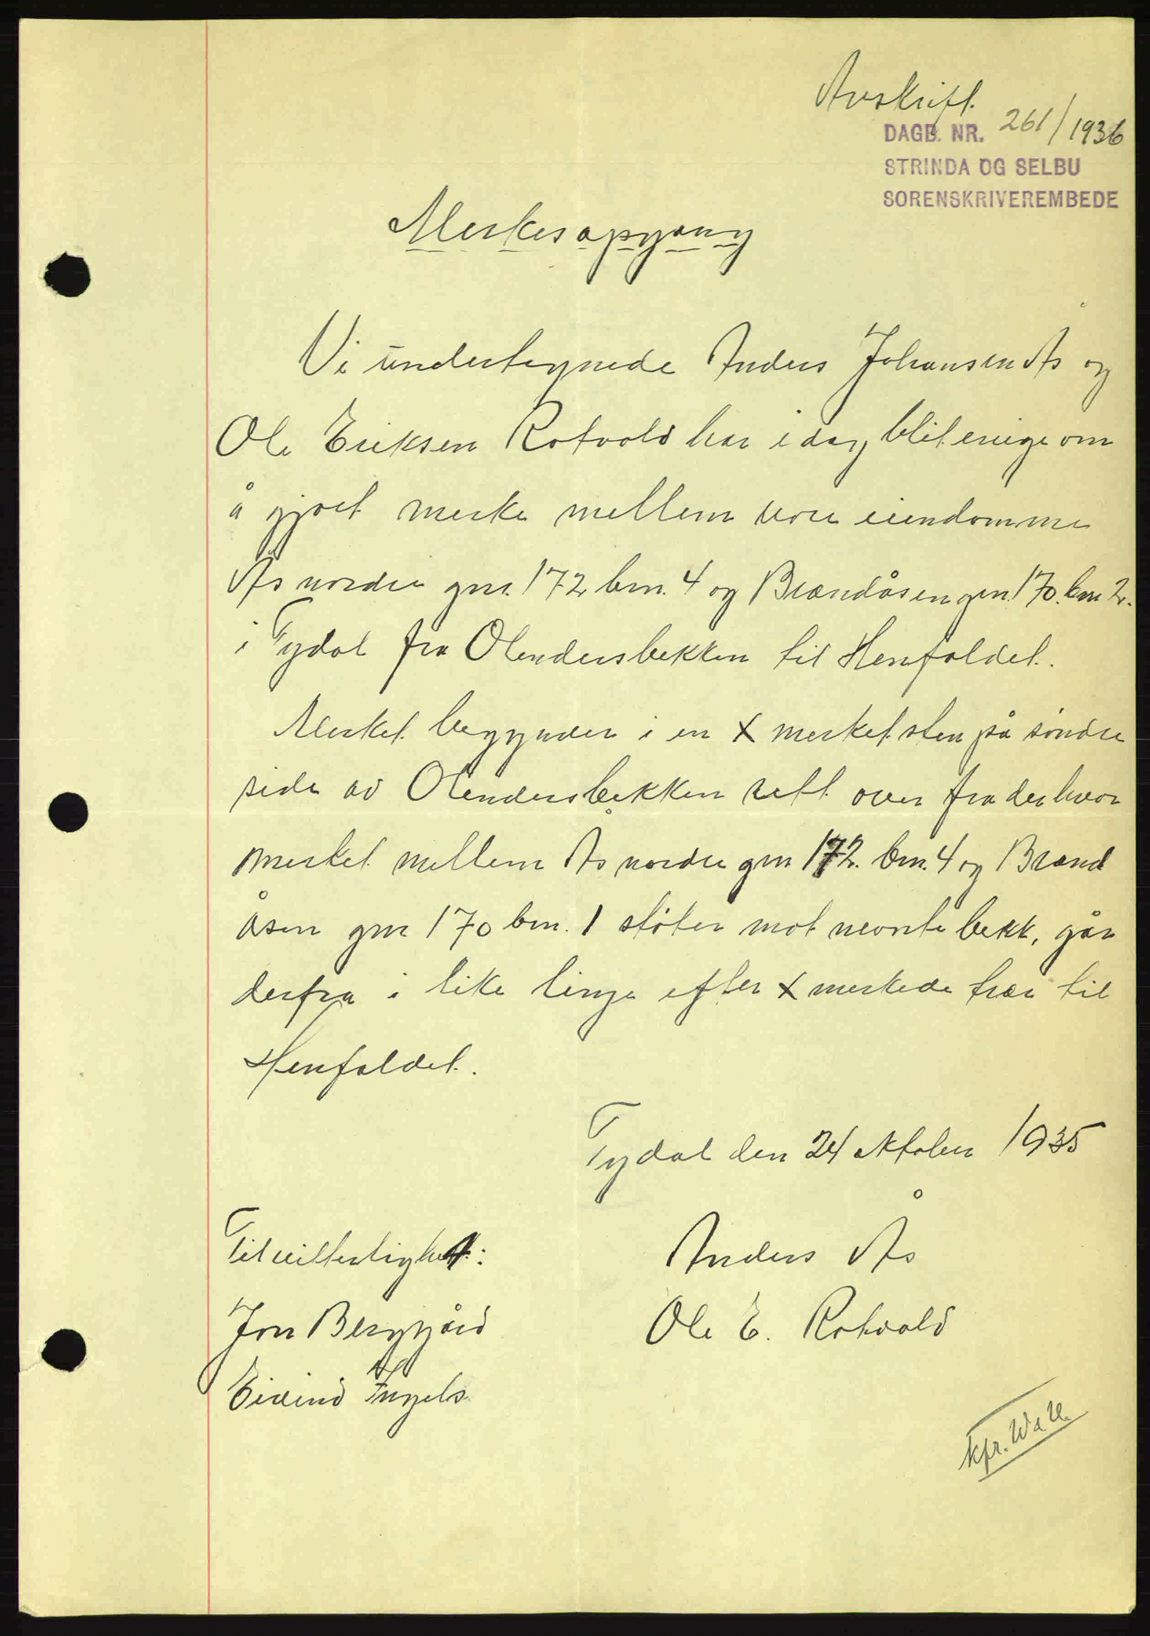 Avskrift.
DAGB. NR. 261/1936
STRINDA OG SELBU
SORENSKRIVEREMBEDE
Merkesopgang
Vi undertegnede Anders Johansen Ås og
Ole Eriksen Rotvold har i dag blit enige om
å gjøre merke mellem vore eiendomme
Ås nordre gnr. 172 bnr. 4 og Brændåsen gnr. 170. bnr 2.
i Tydal fra Olendersbekken til Henfaldet.
Merket begynder i en X merket sten på søndre
side av Olendersbekken rett over fra der hvor
merket mellem Ås nordre gnr 172. bnr. 4 og Brænd
åsen gnr 170 bnr. 1 støter mot nevnte bekk, går
derfra i like linje efter X merkede trær til
Henfaldet.
Tydal den 24 oktober 1935
Anders Ås
Ole E. Rotvold
Til vitterlighet:
Jon Berggård
Eivind Engels
kfr. Wall